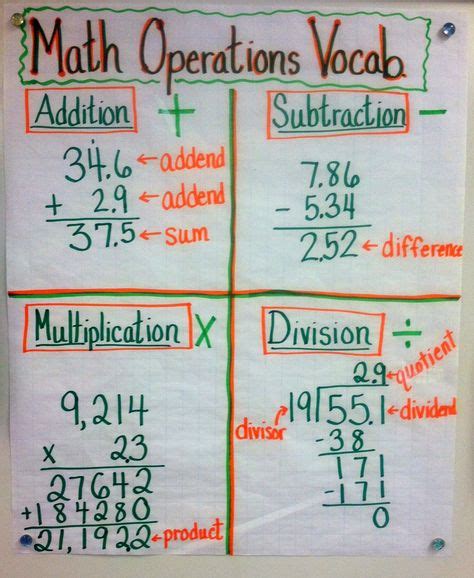 Math Operations Vocab.
Addition +
1
34.6 ←addend
+ 2.9 ←addend
37.5 ←sum
Subtraction −
7.86
- 5.34
2.52 ←difference
Multiplication X
9,214
x 2.3
27642
+184280
21,192.2 ←product
Division ÷
2.9 ←quotient
divisor→ 19)55.1 ←dividend
-38
171
-171
0